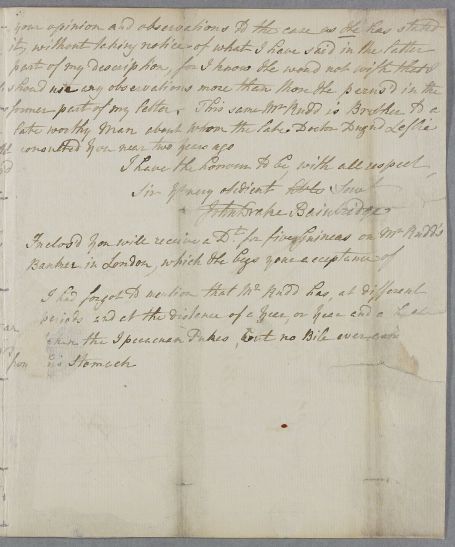 your opinion and observations to the case as He has stated
it, without taking notice of what I have said in the latter
part of my description, for I know He would not wish that I
should use any observations more than those He perus'd in the
former part of my letter. This same Mr Rudd is Brother to a
late worthy Man about whom the late Doctor Leslie
consulted you near two years ago
I have the honour to be, with all respect
Sir yr very obdient Servt
John Drake Bainbridge
Inclosd you will receive a Dt. for five Guineas on Mr Rudd's
Banker in London, which He begs your acceptance of
I had forgot to mention that Mr. Rudd has, at different
periods and at the distance of a year, or year and a
taken the Ipecacuan Pukes, but no Bile ever came
from his Stomach